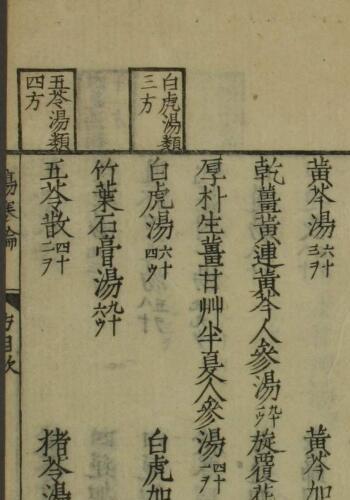 黃芩湯六十三ヲ 黃芩加
乾薑黃連黃芩人參湯九十一ウ 旋覆花
厚朴生薑甘艸半夏人參湯四十一ヲ
白虎湯類三方
白虎湯六十四ウ 白虎加
竹葉石膏湯九十六ウ
五苓湯類四方
五苓散四十二ヲ 猪苓湯
傷寒論 目次